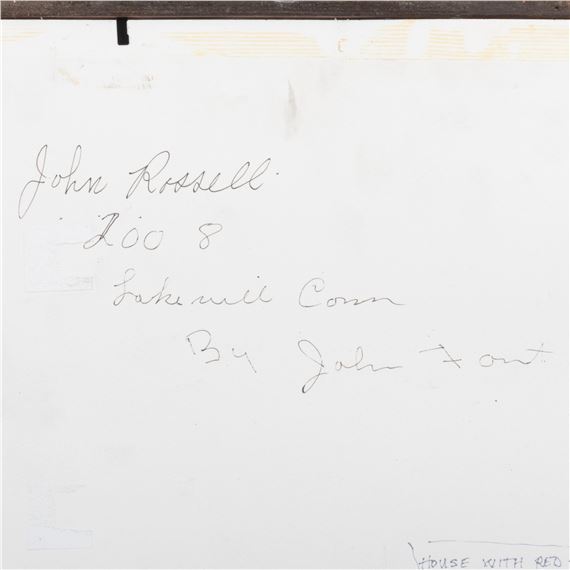 John Rossell
2008
Lakevill Conn
By John Font
HOUSE WITH RED